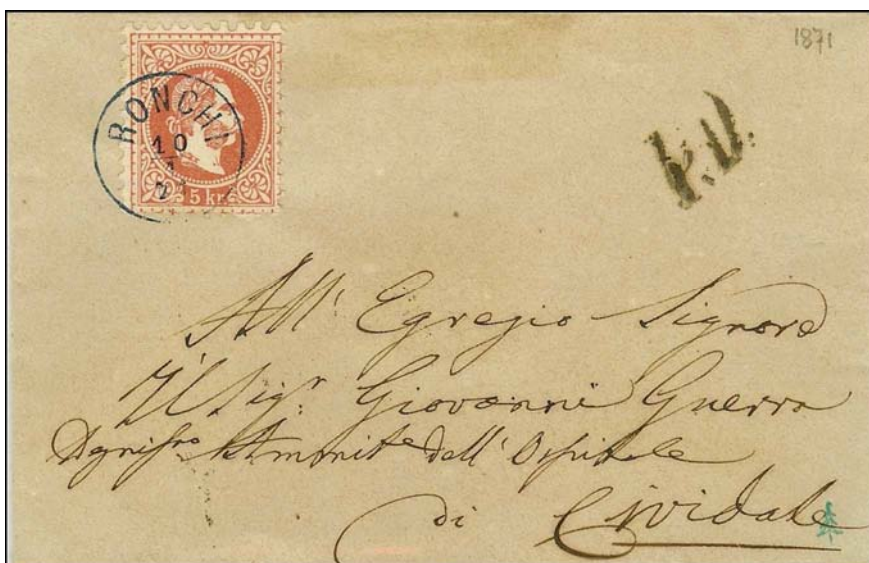 1871
RONCHI
10
5 kr
P.D.
All' Egregio Signore
Il Sigr. Giovanni Guerra
Ammnte dell' Ospitale
di Cividale